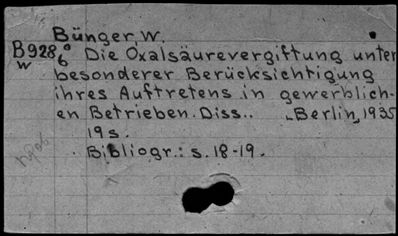 Bünger, W.
B928 o/6 Die Oxalsäurevergiftung unter
w besonderer Berücksichtigung
ihres Auftretens in gewerblich-
en Betrieben. Diss.. „Berlin„ 1935
19 s.
Bibliogr.: s. 18-19.